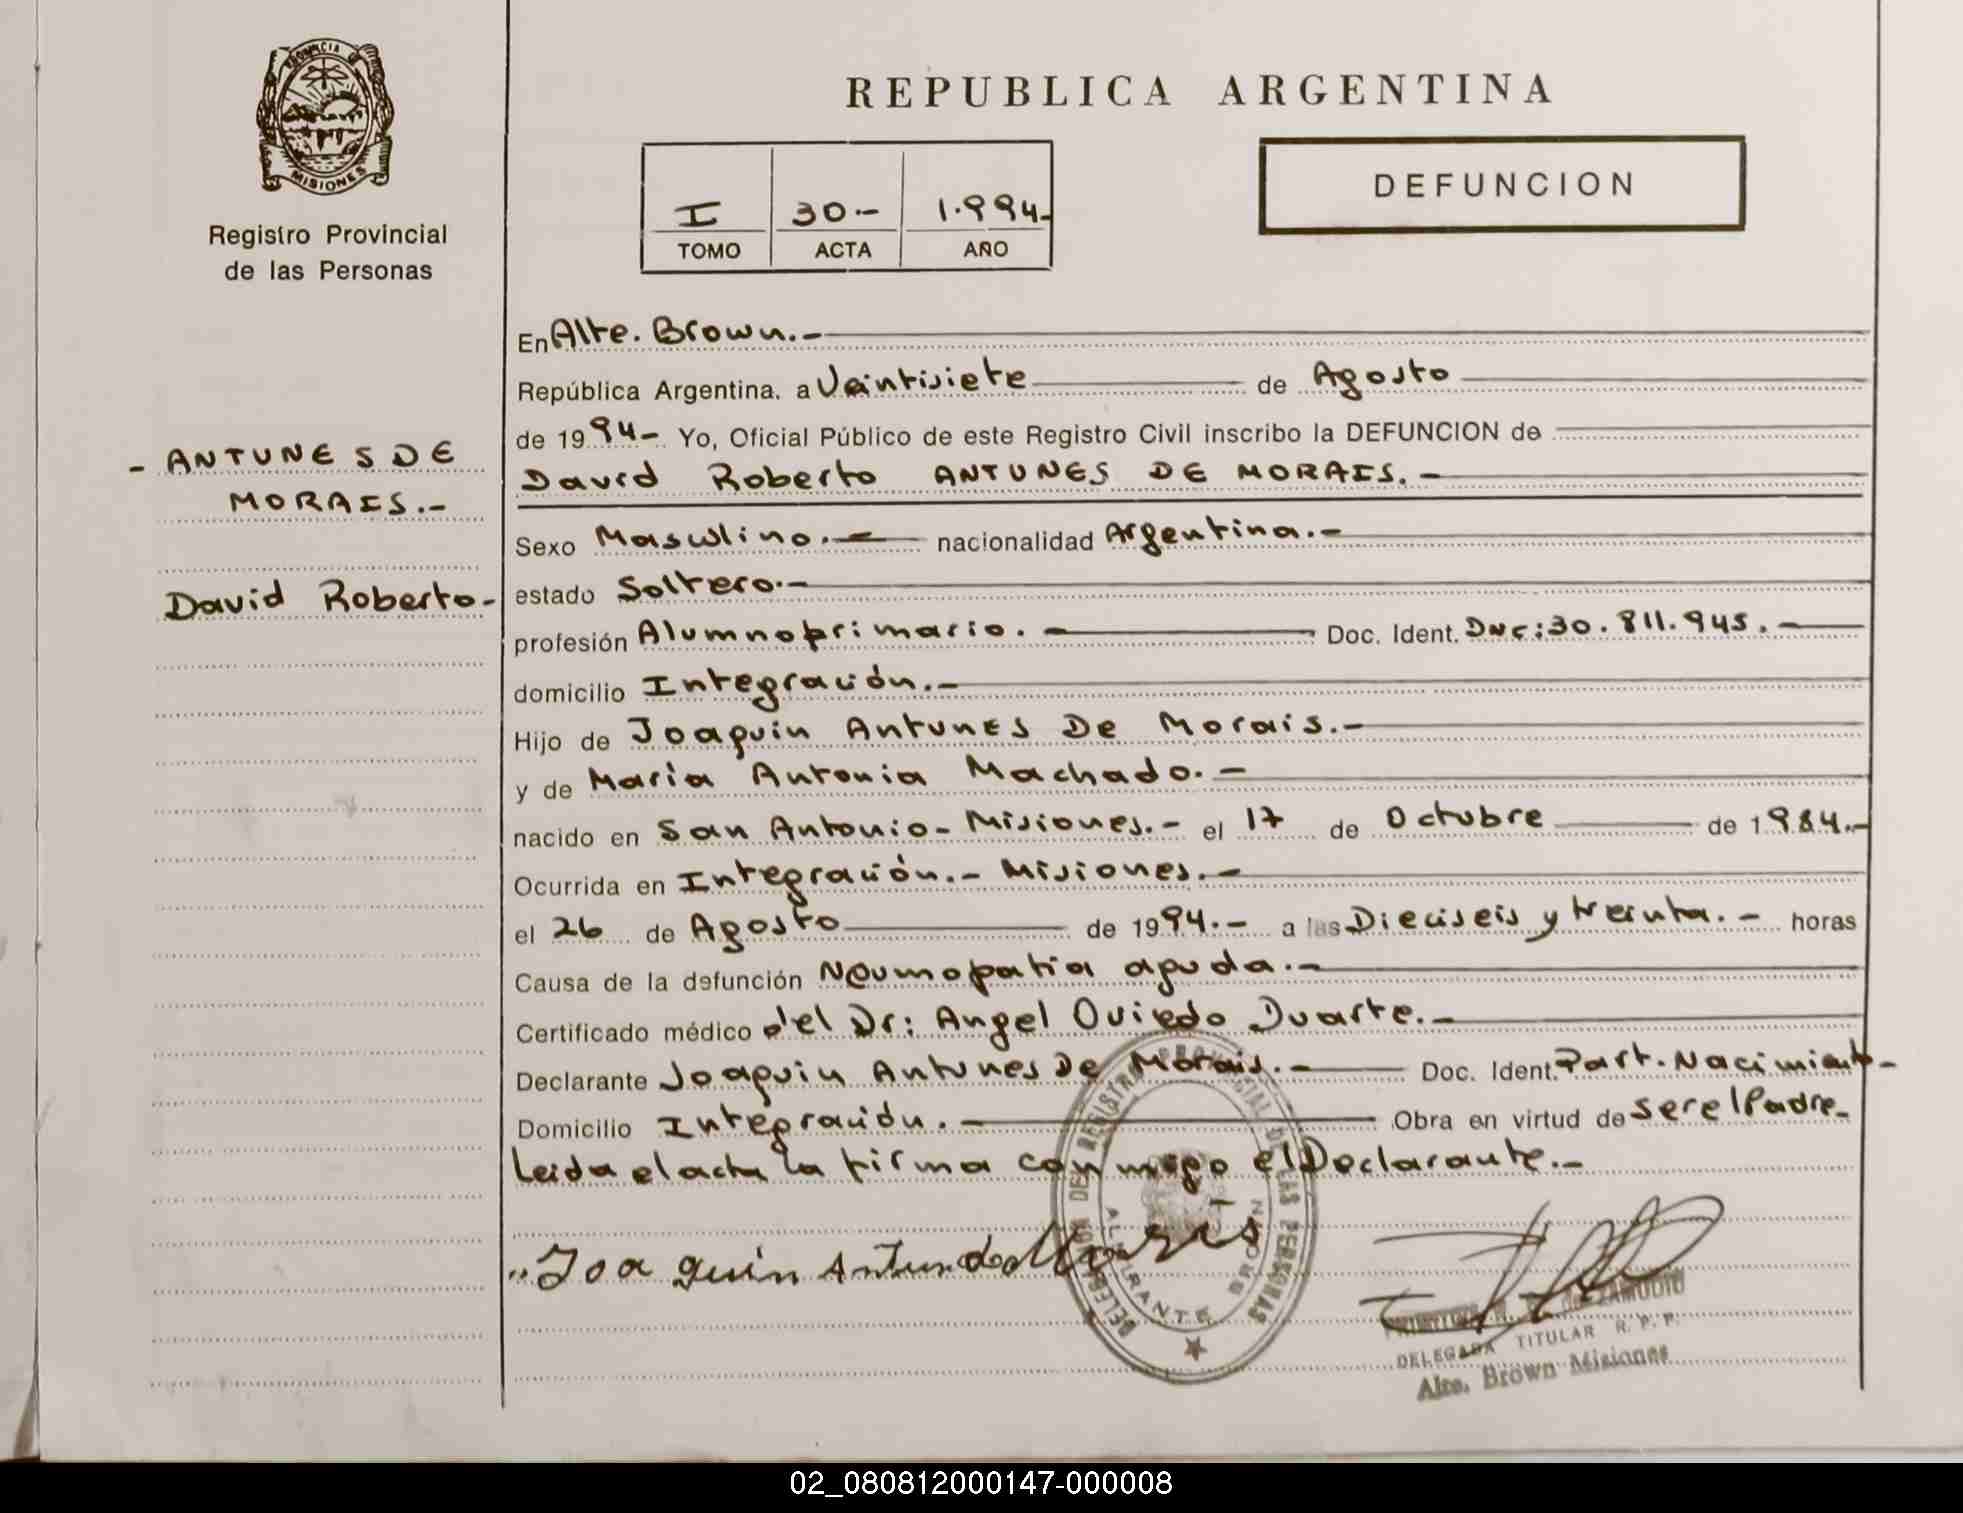 PROVINCIA
MISIONES
Registro Provincial
de las Personas
REPUBLICA ARGENTINA
I 30.- 1.994-
TOMO ACTA AÑO
DEFUNCION
- ANTUNES DE
MORAIS.-
David Roberto-
En Alte. Brown.-
República Argentina, a Veintisiete de Agosto
de 1994- Yo, Oficial Público de este Registro Civil inscribo la DEFUNCION de
David Roberto ANTUNES DE MORAIS.-
Sexo Masculino.- nacionalidad Argentina.-
estado Soltero.-
profesión Alumno primario.- Doc. Ident. Dnc:30.811.945.-
domicilio Integración.-
Hijo de Joaquin Antunes De Morais.-
y de Maria Antonia Machado.-
nacido en San Antonio- Misiones.- el 17 de Octubre de 1984.-
Ocurrida en Integración.- Misiones.-
el 26 de Agosto de 1994.- a las Dieciseis y treinta.- horas
Causa de la defunción Neumopatia aguda.-
Certificado médico del Dr: Angel Oviedo Duarte.-
Declarante Joaquin Antunes De Morais.- Doc. Ident. Part. Nacimiento-
Domicilio Integración.- Obra en virtud de ser el Padre-
Leida el acta la firma conmigo el Declarante.-
Joaquin Antun de Morais
DELEGACION DEL REGISTRO PROVINCIAL DE LAS PERSONAS
ALMIRANTE BROWN
de ZAMUDIO
DELEGADA TITULAR R.P.P.
Alte. Brown Misiones
02_080812000147-000008